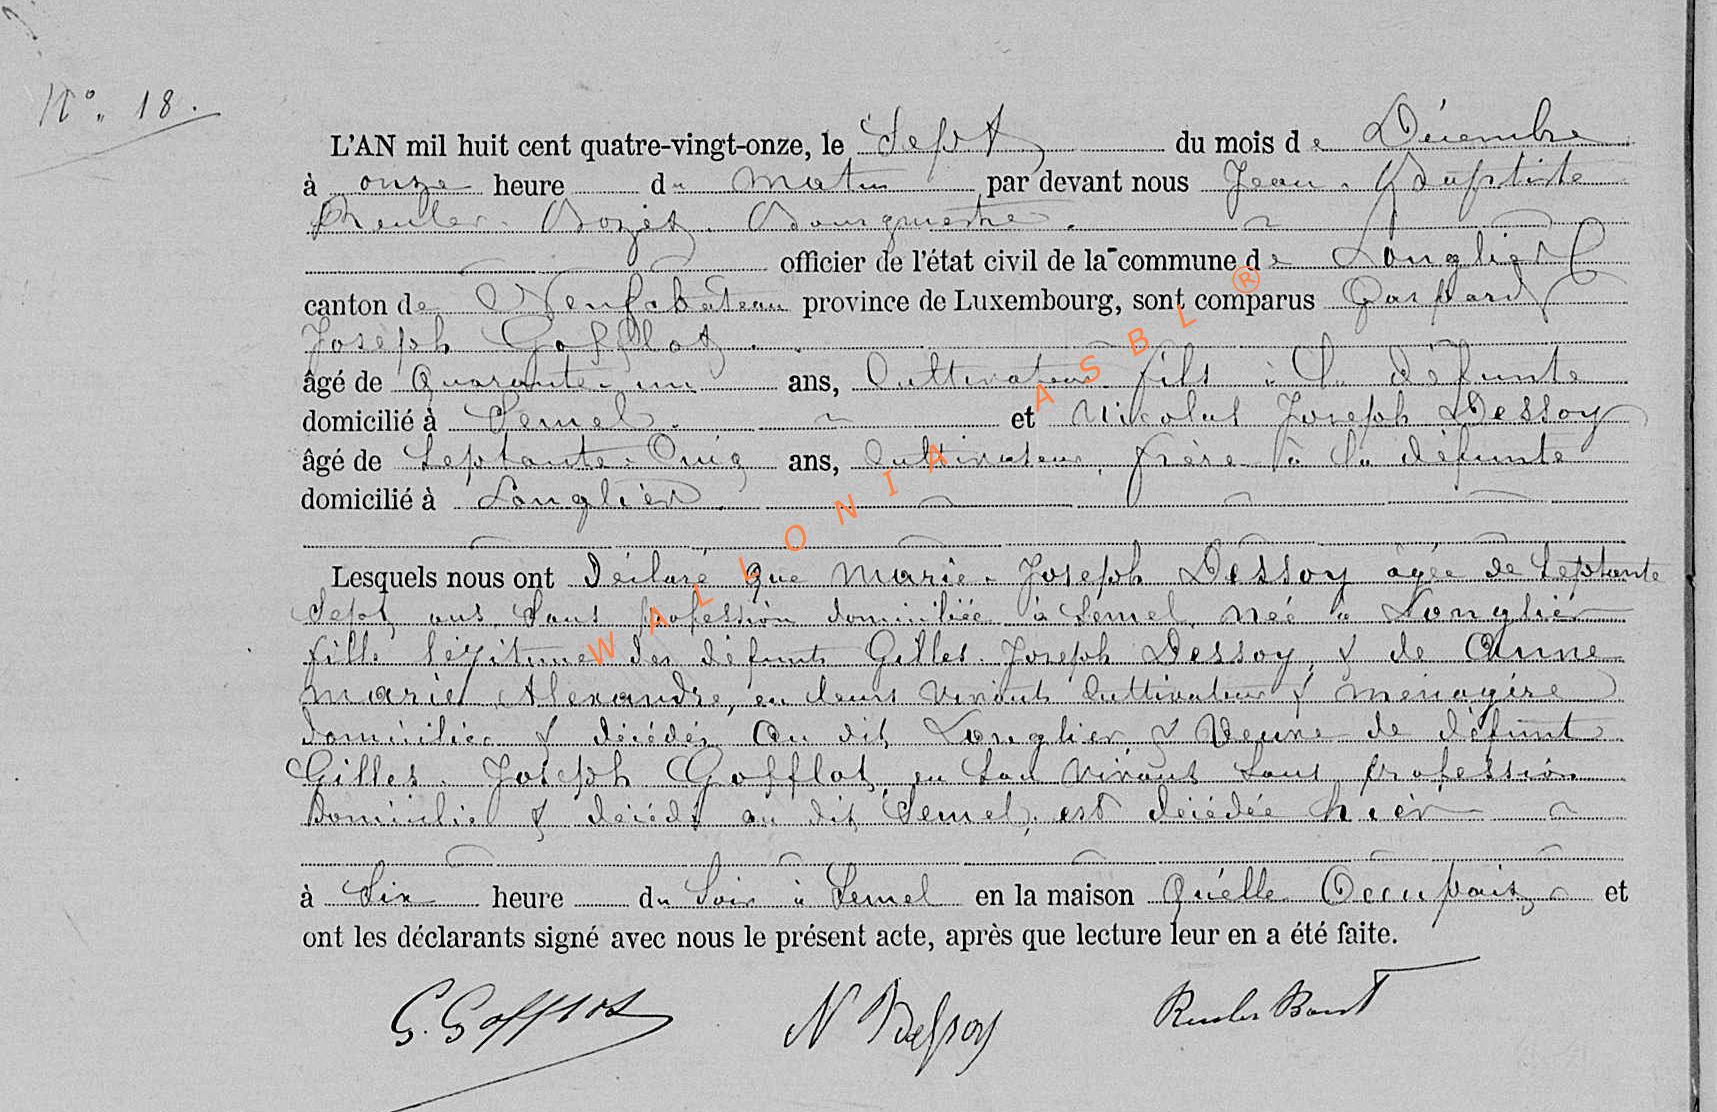 N° 18.
L'AN mil huit cent quatre-vingt-onze, le Sept du mois de Décembre
à onze heure du matin par devant nous Jean-Baptiste
Reuler Bourgmestre.
officier de l'état civil de la commune de Longlier
canton de Neufchâteau province de Luxembourg, sont comparus Gaspard
Joseph Gofflot
âgé de Quarante-un ans, Cultivateur fils à la défunte
domicilié à Semel. et Nicolas Joseph Dessoy
âgé de Septante-Cinq ans, Cultivateur, frère à la défunte
domicilié à Longlier.
Lesquels nous ont déclaré que Marie-Joseph Dessoy âgée de Septante
Sept ans Sans profession domiciliée à Semel née à Longlier
fille légitime des défunts Gilles-Joseph Dessoy, & de Anne
Marie Alexandre, en leurs vivants Cultivateur & ménagère
domiciliés & décédés au dit Longlier & Veuve de défunt
Gilles-Joseph Gofflot en son vivant sans profession
domicilié & décédé au dit Semel, est décédée hier
à Six heure du Soir à Semel en la maison Qu'elle Occupait et
ont les déclarants signé avec nous le présent acte, après que lecture leur en a été faite.
G. Gofflot N Dessoy
WALLONIA ASBL ®